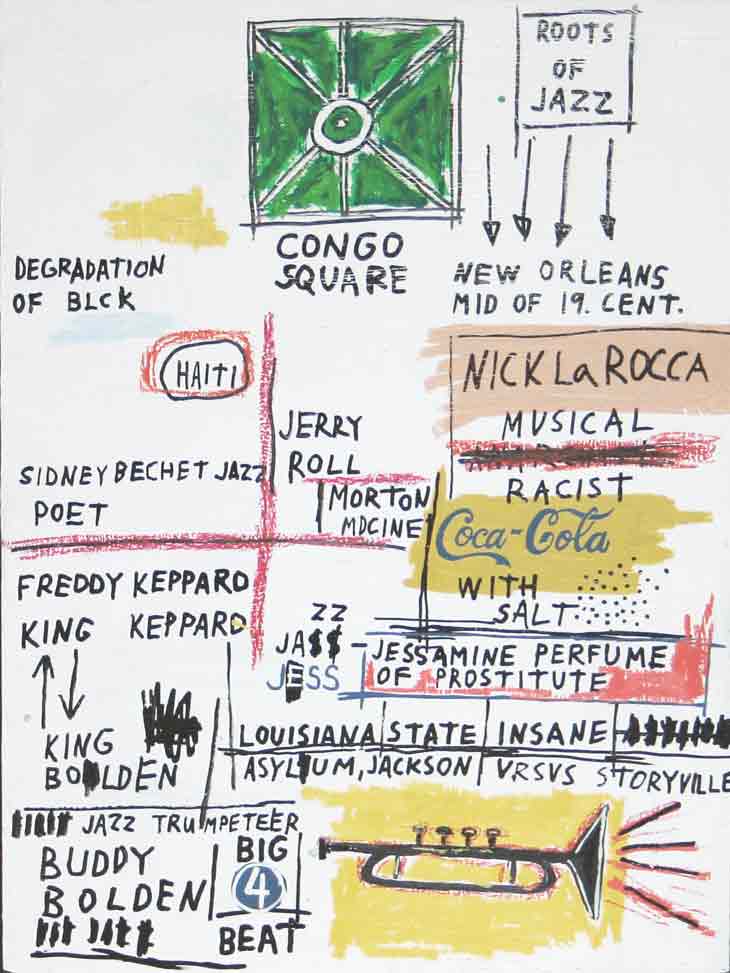 ROOTS
OF
JAZZ
CONGO
SQUARE
NEW ORLEANS
MID OF 19. CENT.
DEGRADATION
OF BLCK
HAITI
NICK La ROCCA
MUSICAL
RACIST
JERRY
ROLL
MORTON
MDCINE
SIDNEY BECHET JAZZ
POET
Coca-Cola
WITH
SALT
FREDDY KEPPARD
KING KEPPARD
ZZ
JA$$
JESS
JESSAMINE PERFUME
OF PROSTITUTE
KING
BOLDEN
LOUISIANA STATE INSANE
ASYLUM, JACKSON VRSVS STORYVILLE
JAZZ TRUMPETEER
BUDDY
BOLDEN
BIG
4
BEAT